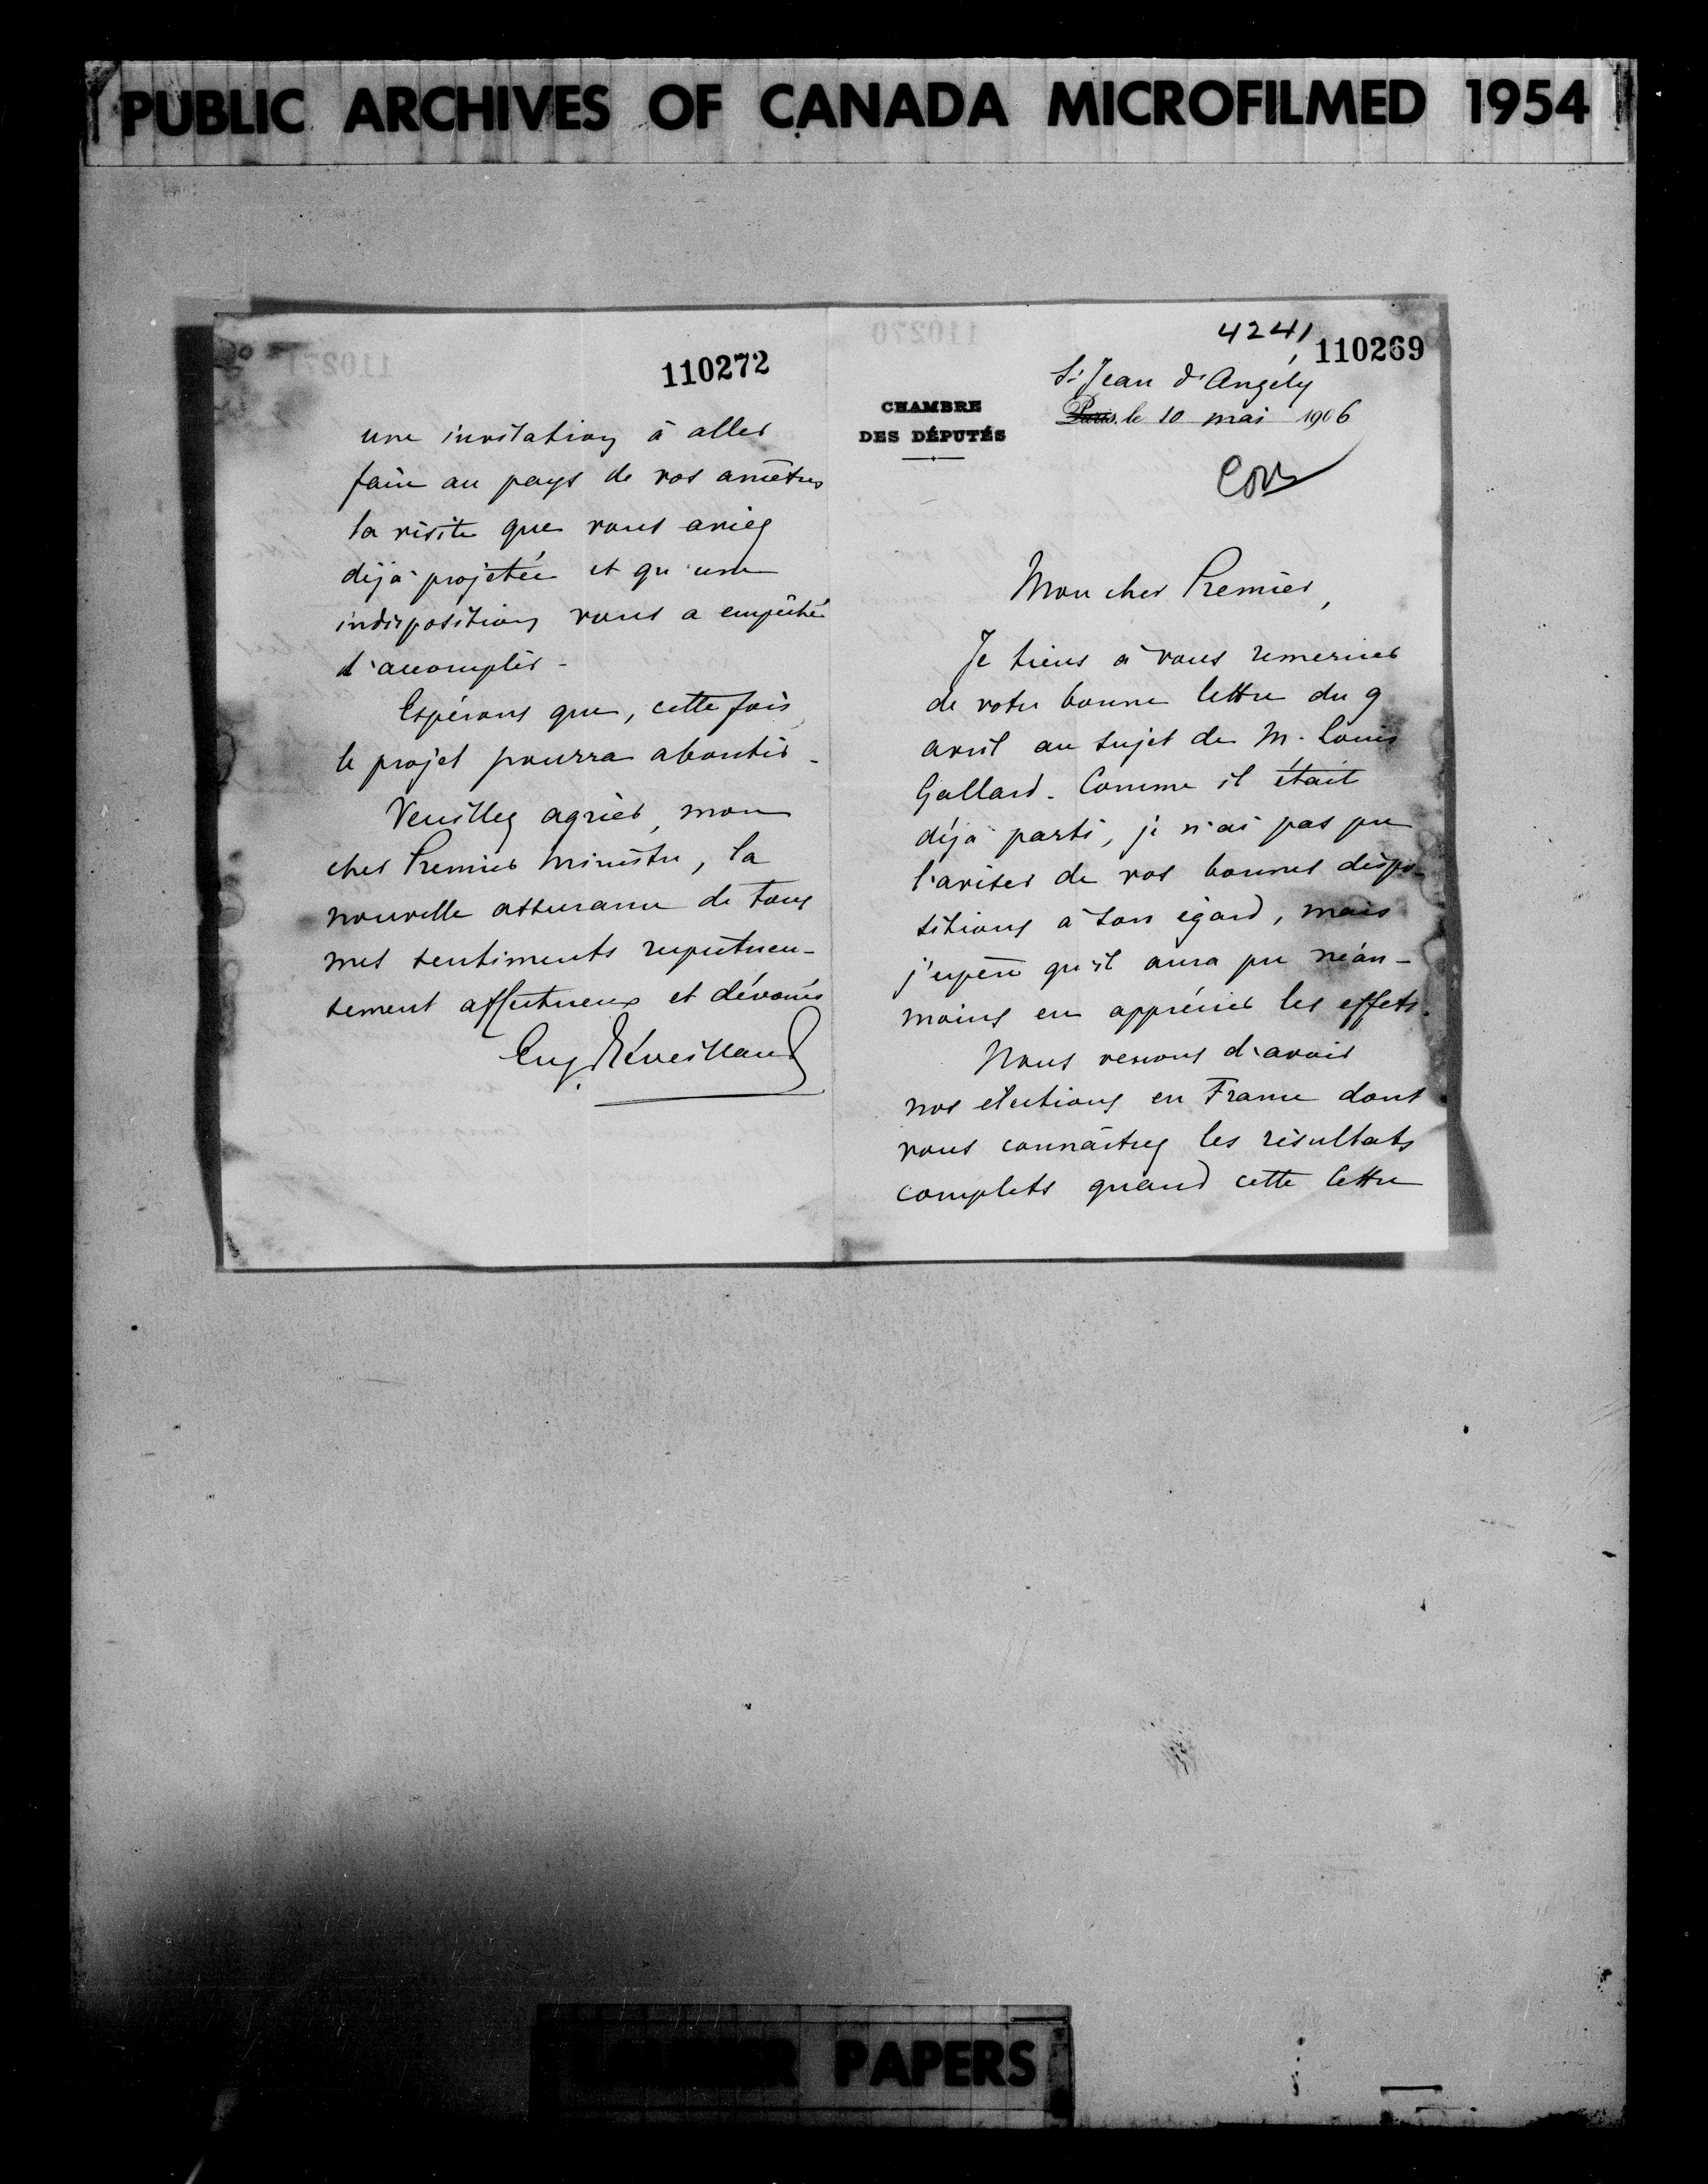 PUBLIC ARCHIVES OF CANADA MICROFILMED 1954
110272
une invitation à aller
faire au pays de vos ancêtres
la visite que vous aviez
déjà projetée et qu'une
indisposition vous a empêché
d'accomplir.
Espérons que, cette fois,
le projet pourra aboutir.
Veuillez agréer, mon
cher Premier Ministre, la
nouvelle assurance de tous
mes sentiments respectueu-
sement affectueux et dévoués
Eug. Réveillaud
4241
110269
CHAMBRE
DES DÉPUTÉS
St Jean d'Angely
Paris, le 10 mai 1906
Mon cher Premier,
Je tiens à vous remercier
de votre bonne lettre du 9
avril au sujet de M. Louis
Gallard. Comme il était
déjà parti, je n'ai pas pu
l'aviser de vos bonnes dispo-
sitions à son égard, mais
j'espère qu'il aura pu néan-
moins en apprécier les effets.
Nous venons d'avoir
nos élections en France dont
vous connaîtrez les résultats
complets quand cette lettre
PAPERS